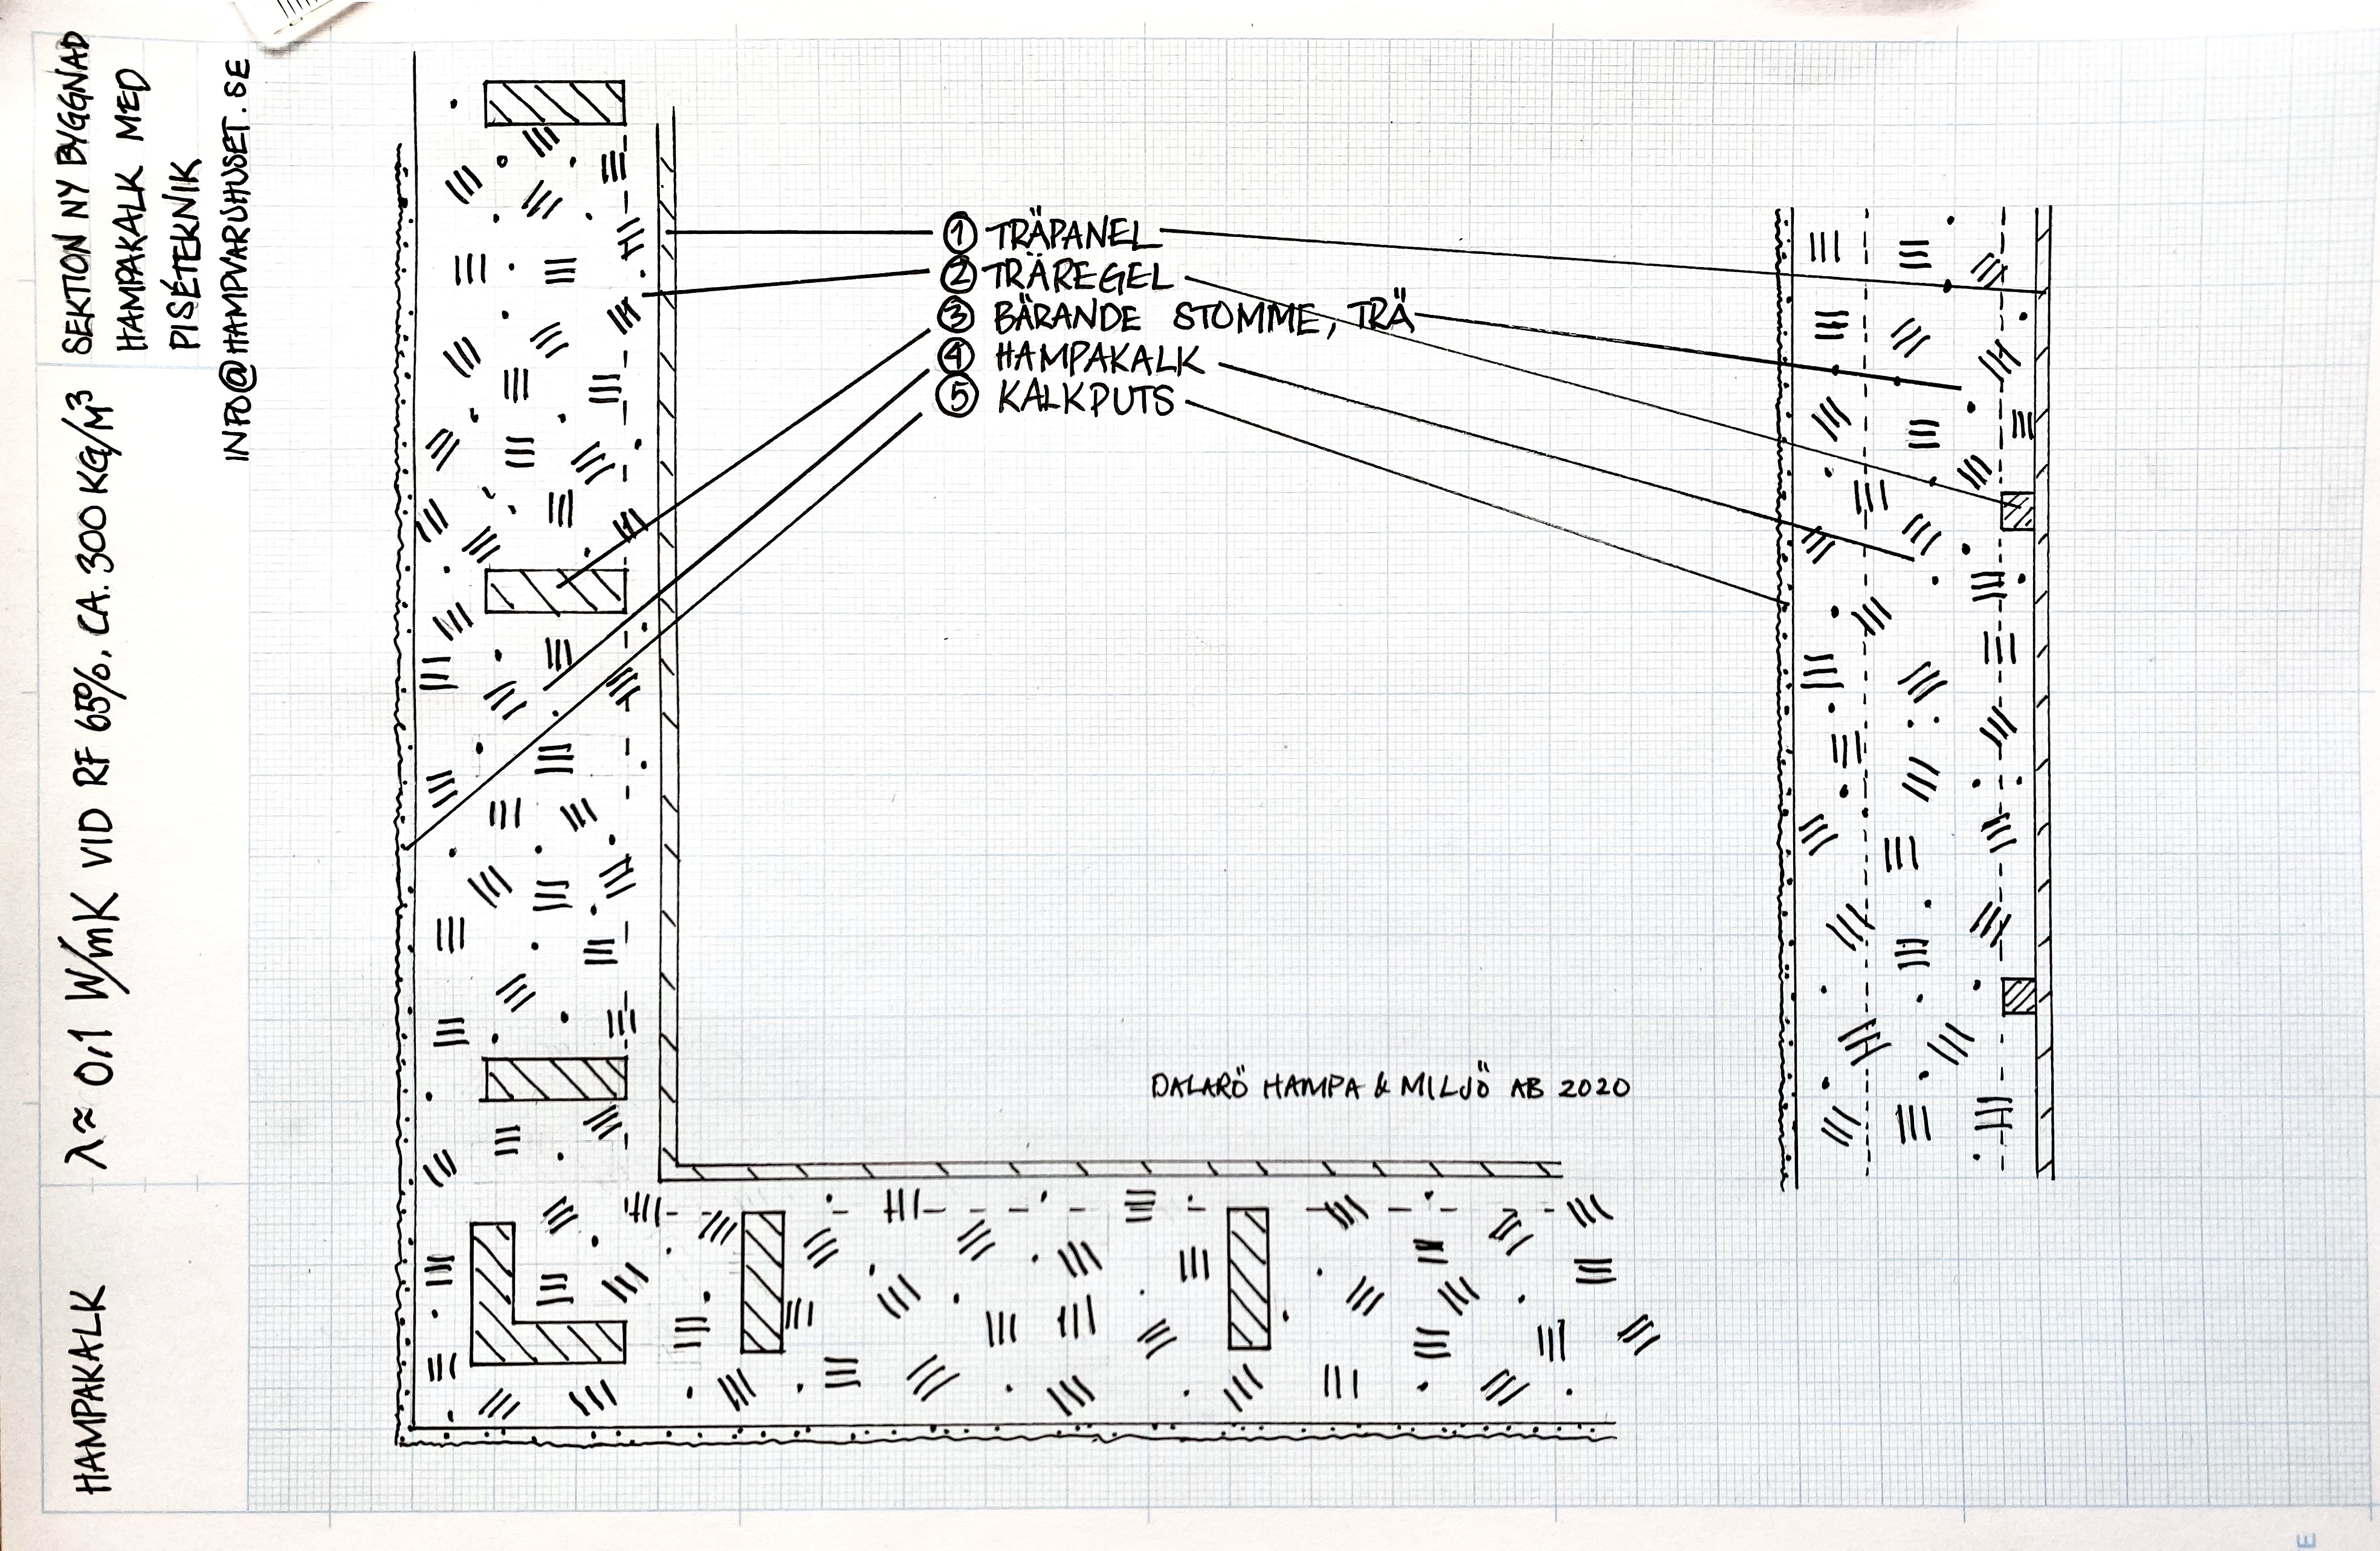 SEKTION NY BYGGNAD
HAMPAKALK MED
PISÉTEKNIK
INFO@HAMPVARUHUSET.SE
λ≈ 0,1 W/mK VID RF 65%, CA. 300 KG/M³
HAMPAKALK
① TRÄPANEL
② TRÄREGEL
③ BÄRANDE STOMME, TRÄ
④ HAMPAKALK
⑤ KALKPUTS
DALARÖ HAMPA & MILJÖ AB 2020
E